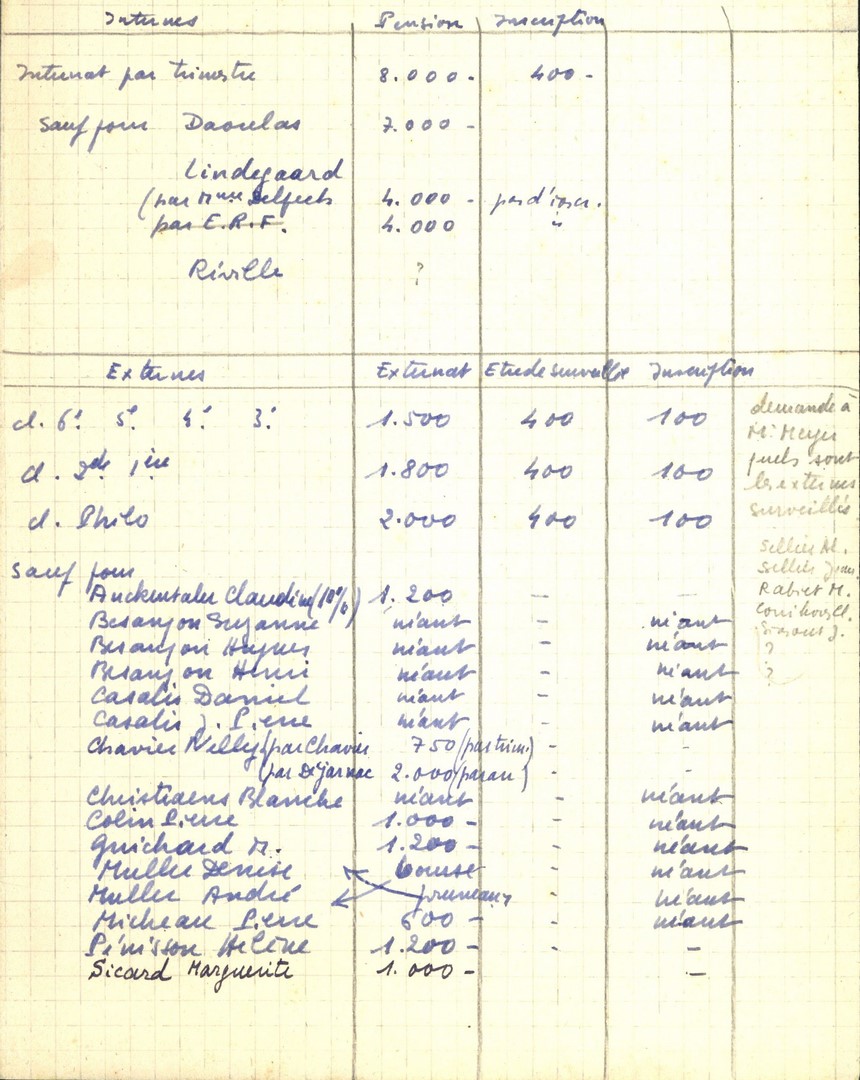 Internes Pension Inscription
Internat par trimestre 8.000. 400-
Sauf pour Daoulas 7.000 -
Lindegaard
(par Mme 4.000 - pas d'inscr.
par E.R.F. 4.000 "
Réville ?
Externes Externat Etude surveillée Inscription
cl. 6e 5e 4e 3e 1.500 400 100
cl. 2de 1ère 1.800 400 100
cl. Philo 2.000 400 100
demandé à
Mr Meyer
quels sont
les externes
surveillés
Sellier
Sellier Jean
Rabiet M.
?
?
Sauf pour
Auckentaler Claudine (10%) 1.200 - -
Besançon Suzanne néant - néant
Besançon Hugues néant - néant
Besançon Henri néant - néant
Casalis Daniel néant - néant
Casalis J. Pierre néant - néant
Chavier Nelly (par Chavier 750 (par trim.) - -
(par De Jarnac 2.000 (par an) - -
Christiaens Blanche néant - néant
Colin Pierre 1.000 - - néant
Guichard M. 1.200 - - néant
Muller Denise bourse - néant
Muller André pruneaux - néant
Micheau Pierre 600 - - néant
Pénisson Hélène 1.200 - - -
Sicard Marguerite 1.000 - -